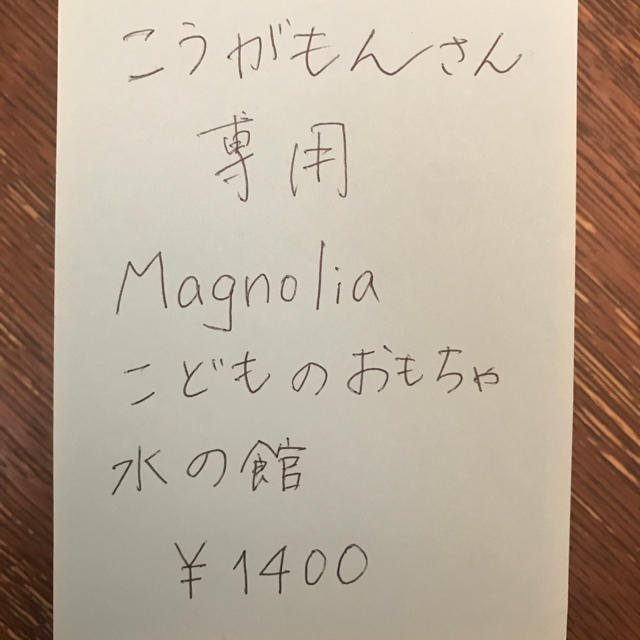 こうがもんさん
専用
Magnolia
こどものおもちゃ
水の館
¥1400